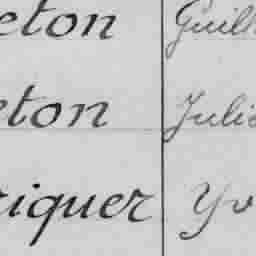 eton Guilh
eton Julie
riquer Yv